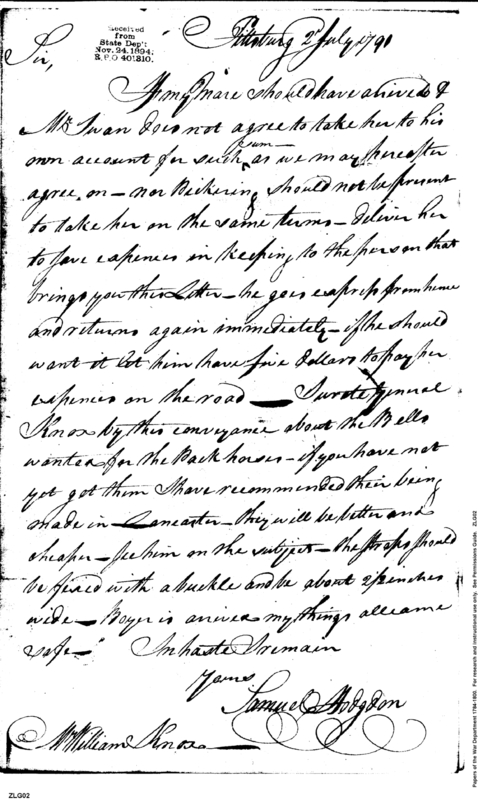 Received
from
State Dep't
Nov. 24. 1894;
R.P.O 401310.
Pittsburg 2d July 1791
Sir,
If my Mare should have arrived &
Mr. Swan does not agree to take her to his
own account for such sum as we may hereafter
agree on — nor Pickering should not be present
to take her on the same terms — deliver her
to save expences in keeping, to the person that
brings you this Letter — he goes express from hence
and returns again immediately — if he should
want it let him have five dollars to pay her
expences on the road — I wrote General
Knox by this conveyance about the Bells
wanted for the Pack horses — if you have not
yet got them I have recommended their being
made in Lancaster — they will be better and
cheaper — see him on the subject — the straps should
be fixed with a buckle and be about 2½ inches
wide — Boyer is arrived my things all came
safe —
In haste I remain
Yours
Samuel Hodgdon
Mr. William Knox
ZLG02
Papers of the War Department 1784-1800. For research and instructional use only. See Permissions Guide. ZLG02